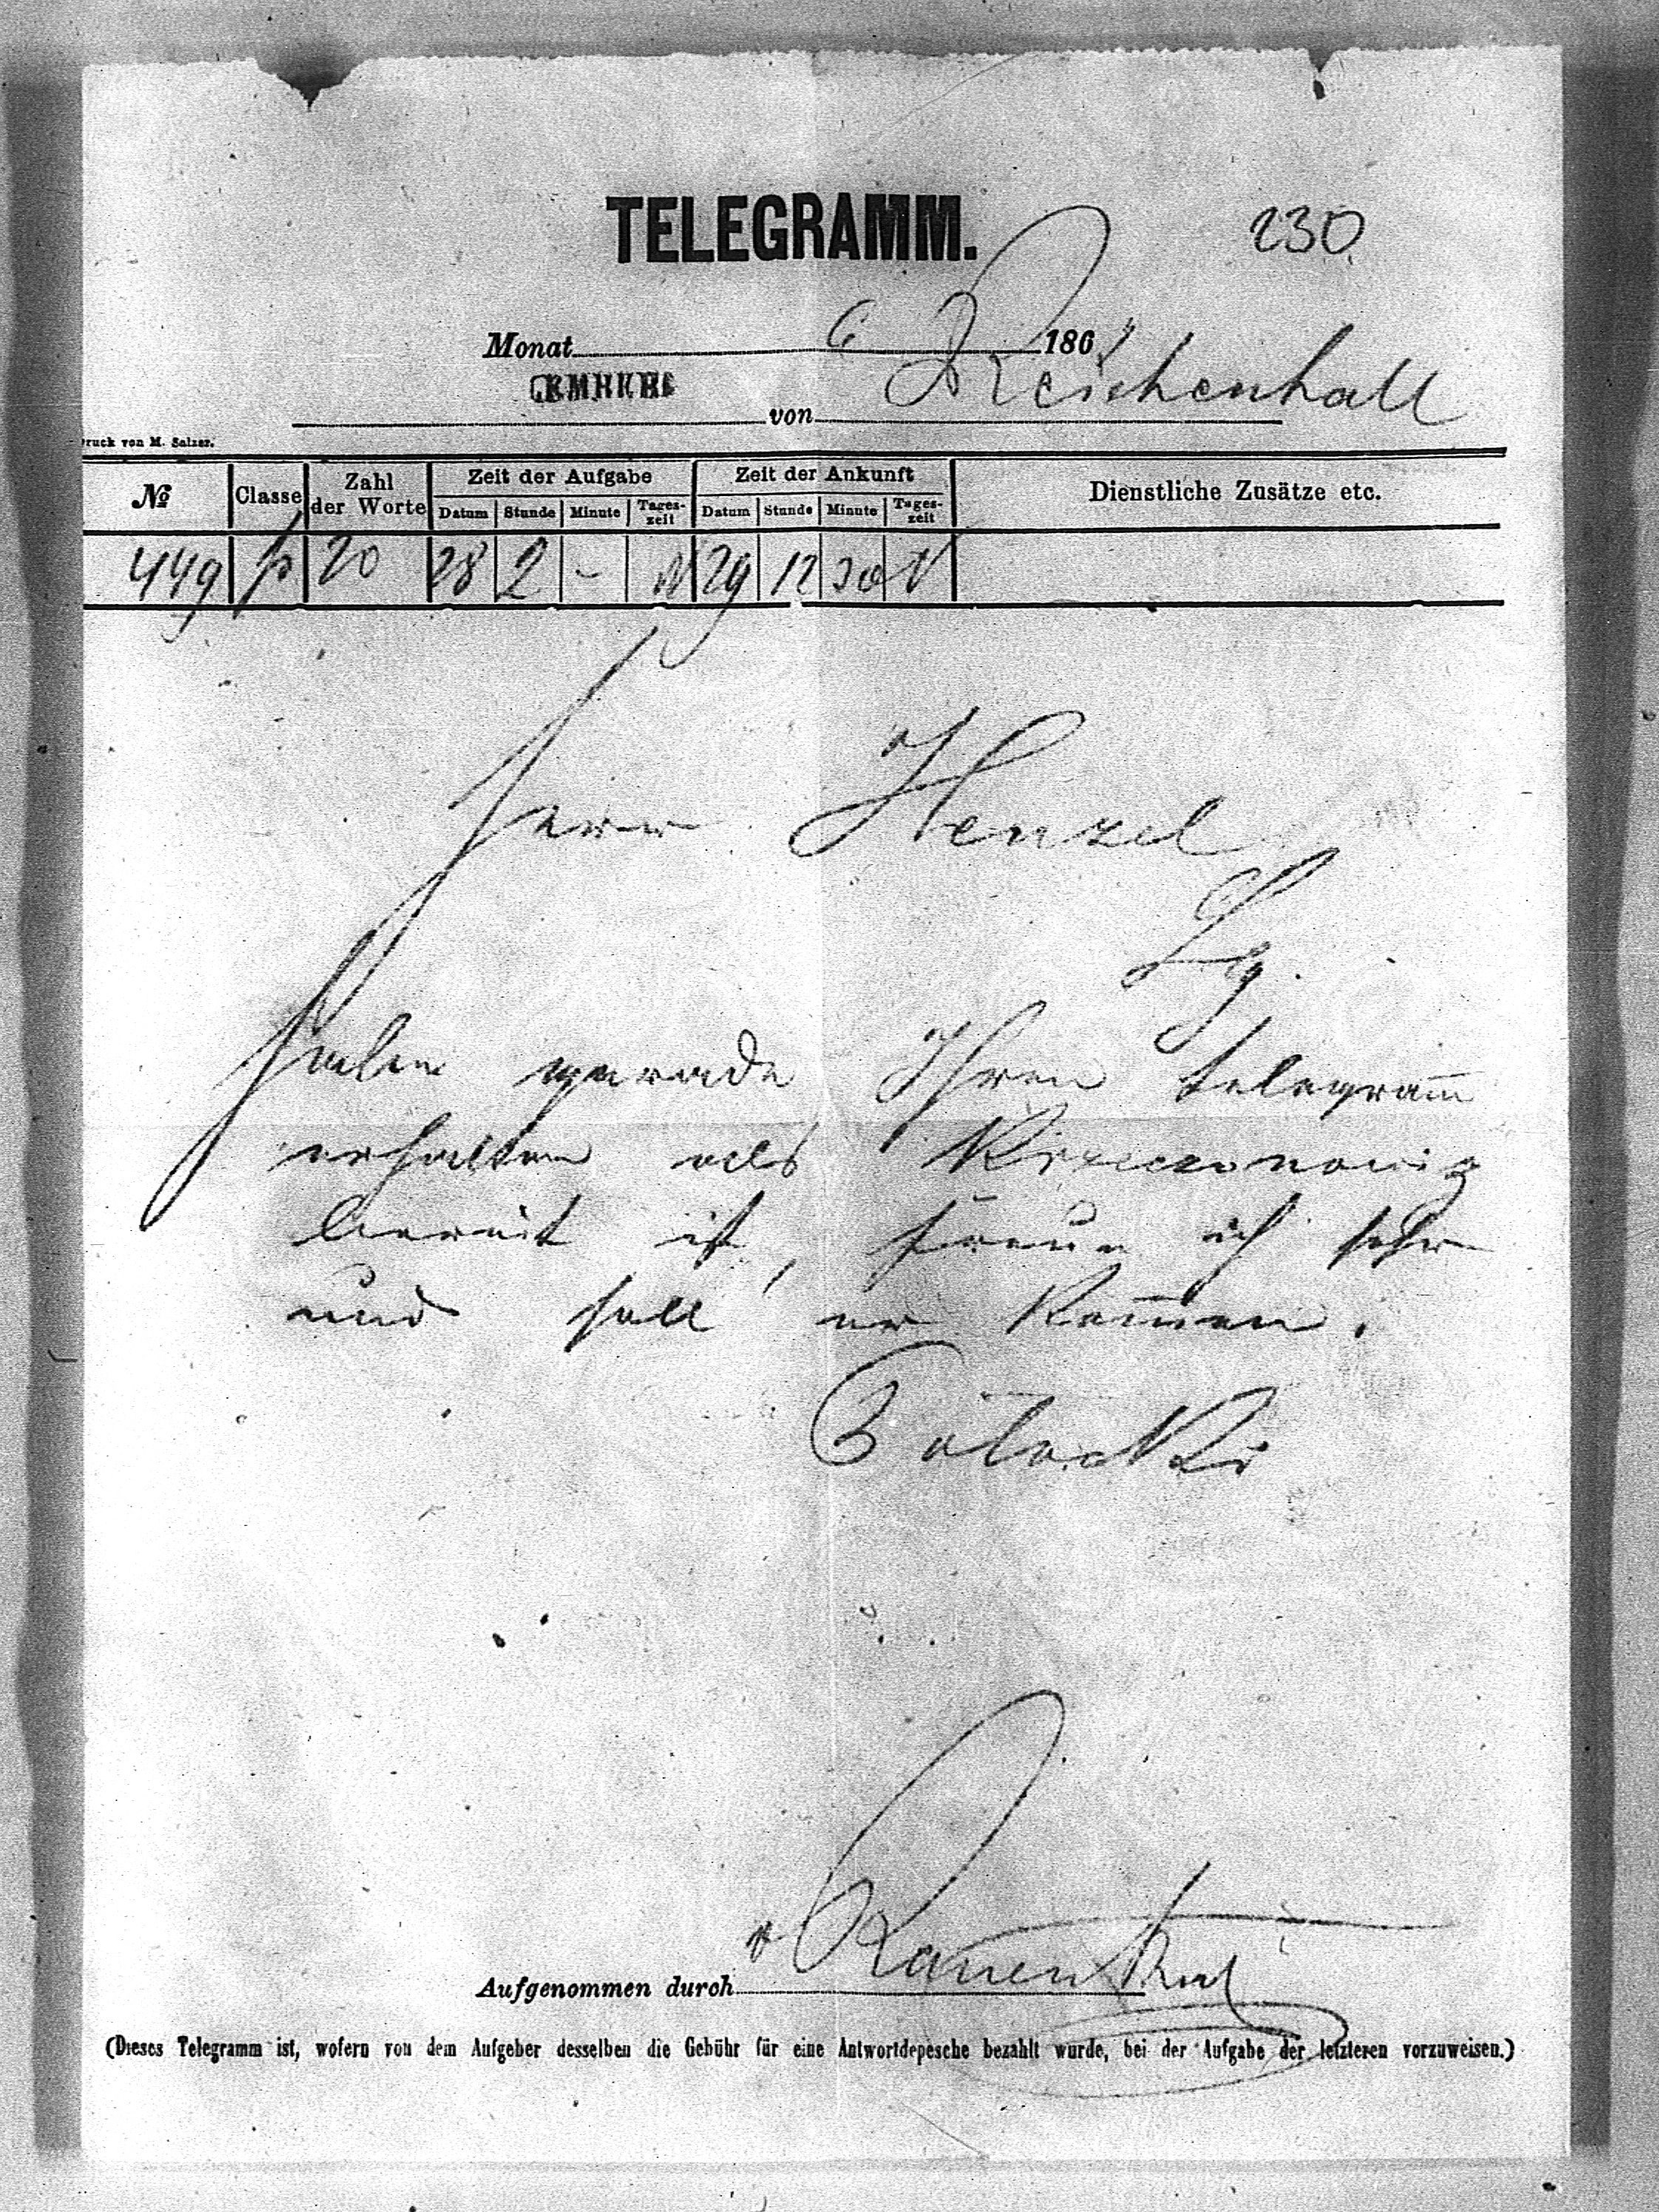 TELEGRAMM.
230
Monat 6 186
LEMBERG
von Reichenhall
Druck von M. Salzer.
№ Classe Zahl der Worte Zeit der Aufgabe Zeit der Ankunft Dienstliche Zusätze etc.
Datum Stunde Minute Tageszeit Datum Stunde Minute Tageszeit
449 p 20 28 2 - N 29 12 30 N
Herr Henzel
Lg.
Habe gerade Ihren Telegram̅
erhalten als
bereit ist, freue ich sehr
und soll er kom̅en.
Aufgenommen durch
(Dieses Telegramm ist, wofern von dem Aufgeber desselben die Gebühr für eine Antwortdepesche bezahlt wurde, bei der Aufgabe der letzteren vorzuweisen.)